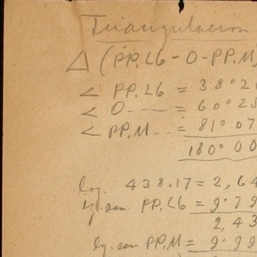 Triangulacion
Δ (PP.L6 - O - PP.M
< PP.L6 = 38°2
< O = 60°25
< PP.M = 81°07
180°00
log. 438.17 = 2,64
lg. sen PP.L6 = 9.79
2,43
lg. sen PP.M = 9.99